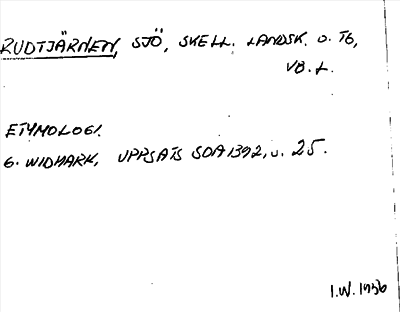 RUDTJÄRNEN, SJÖ, SKELL. LANDSK. O. TG,
VB. L.
ETYMOLOGI.
G. WIDMARK, UPPSATS SOA 1392, s. 25.
I.W. 1956